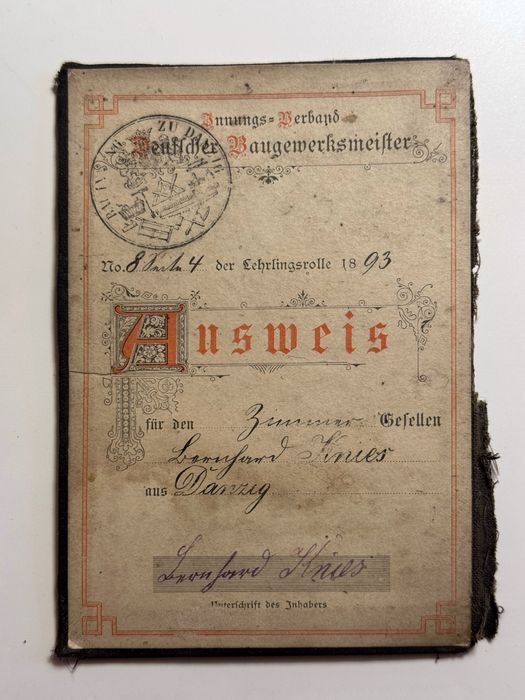 Innungs-Verband
Deutscher Baugewerksmeister
ZU DANZIG
No. 8 Seite 4 der Lehrlingsrolle 1893
Ausweis
für den Zimmer Gesellen
Bernhard Knies
aus Danzig
Bernhard Knies
Unterschrift des Inhabers